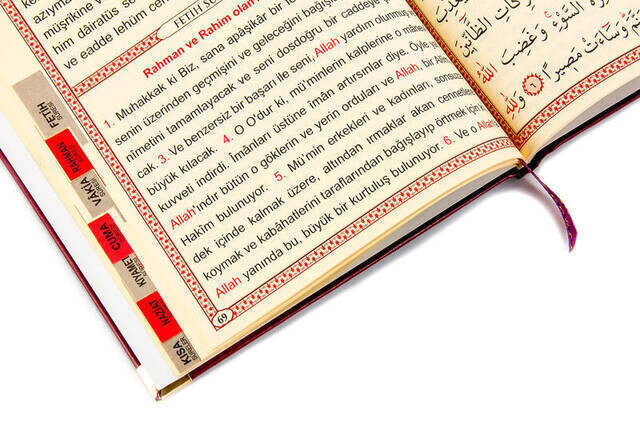 müşrikine
him dâiratüs
ve eadde lehüm cehen
FETİH SÛ
Rahman ve Rahim olan
1. Muhakkak ki Biz, sana apâşikâr bir
senin üzerinden geçmişini ve geleceğini bağışl
nimetini tamamlayacak ve seni dosdoğru bir caddeye
cak. 3. Ve benzersiz bir başarı ile seni, Allah yardım olunmuş
büyük kılacak. 4. O O'dur ki, mü'minlerin kalplerine o mâne
kuvveti indirdi. İmânları üstüne îmân artırsınlar diye. Öyle
Allah'indir bütün o göklerin ve yerin orduları ve Allah, bir Alîm
Hakîm bulunuyor. 5. Mü'min erkekleri ve kadınları, sonsuz
dek içinde kalmak üzere, altından ırmaklar akan cennetler
koymak ve kabâhatlerini taraflarından bağışlayıp örtmek için
Allah yanında bu, büyük bir kurtuluş bulunuyor. 6. Ve o Allah
69
FETİH
SÛRESİ
RAHMAN
SÛRESİ
VÂKİA
SÛRESİ
CUMA
KIYAMET
NAZİAT
KISA
SÛRELER
بَرَكَاتِ الظَّانِّينَ
السَّوْءِ وَغَضِبَ اللّٰهُ
وَسَاءَتْ مَصِيرًا
٦ وَلِلّٰهِ